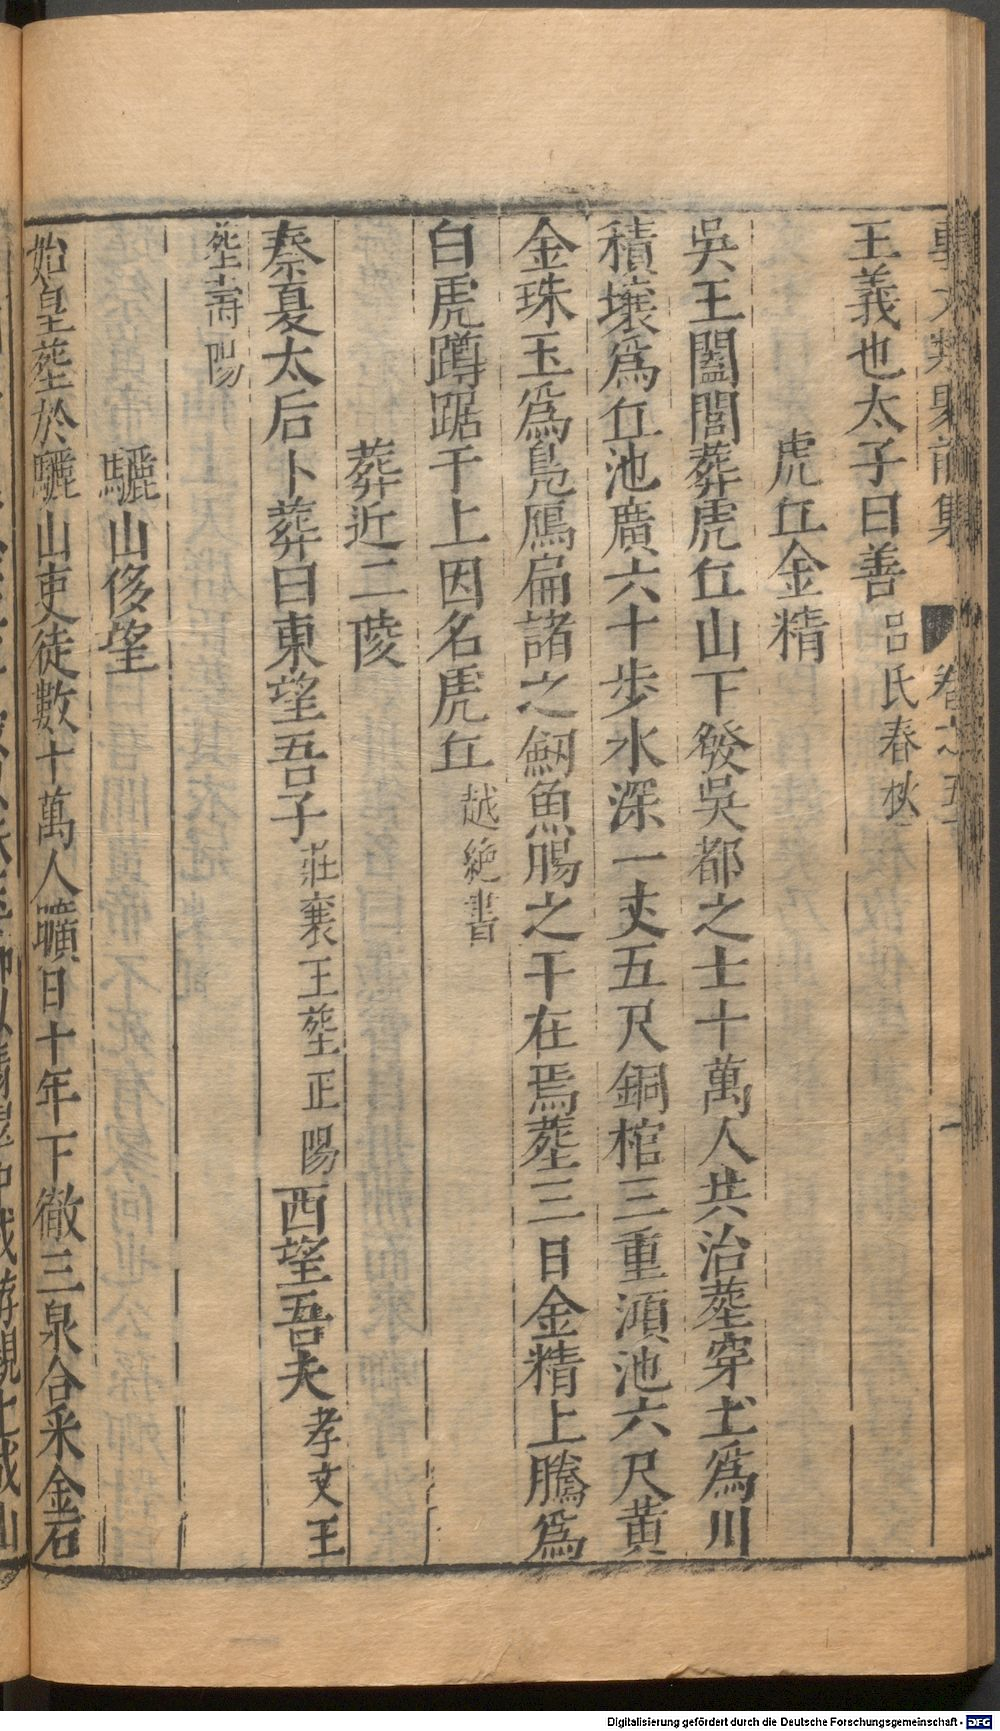 事文類聚前集 卷之五十
王義也太子曰善呂氏春秋
虎丘金精
吳王闔閭葬虎丘山下發吳都之士十萬人共治塟穿土爲川
積壤爲丘池廣六十步水深一丈五尺銅棺三重澒池六尺黃
金珠玉爲鳧鴈扁諸之劔魚腸之干在焉塟三日金精上騰爲
白虎蹲踞于上因名虎丘越絶書
葬近二陵
秦夏太后卜葬曰東望吾子莊襄王塟正陽西望吾夫孝文王
塟壽陽
驪山侈塋
始皇塟於驪山吏徒數十萬人曠日十年下徹三泉合采金石
Digitalisierung gefördert durch die Deutsche Forschungsgemeinschaft - DFG